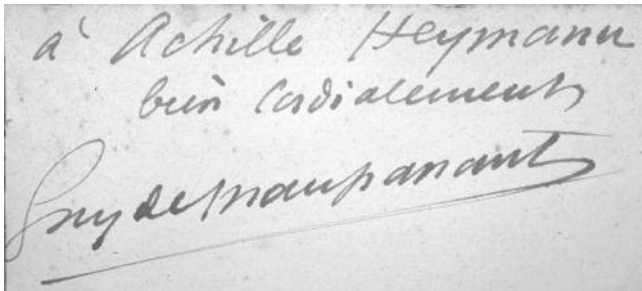 à Achille Heymann
bien Cordialement
Guy de Maupassant